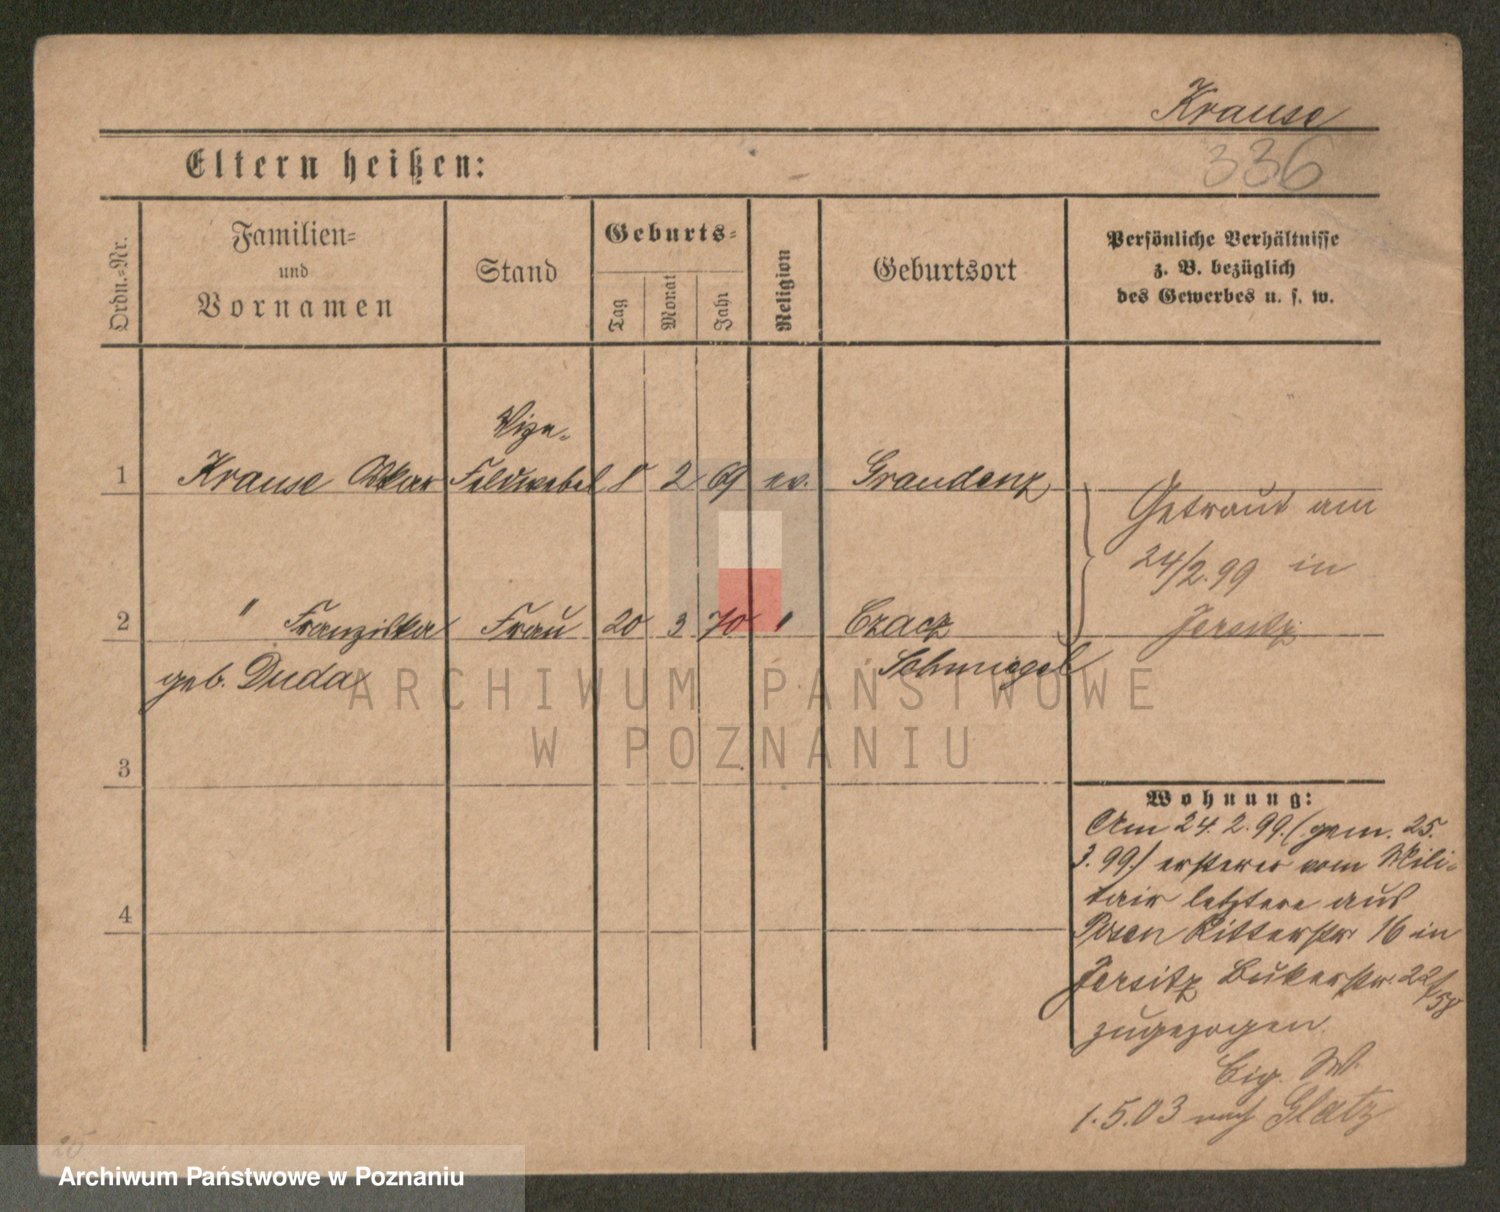 Krause
336
Eltern heißen:
Ordn.-Nr.
Familien-
und
Vornamen
Stand
Geburts-
Tag
Monat
Jahr
Religion
Geburtsort
Persönliche Verhältnisse
z. B. bezüglich
des Gewerbes u. s. w.
Vize-
1 Krause Oskar Feldwebel 8 2 69 ev. Graudenz
Getraut am
24/2.99 in
Jersitz
2 " Franziska Frau 20 3 70 " Czacz
geb. Duda Schmiegel
3
4
Wohnung:
Am 24.2.99 (gem. 25.
3.99) ersterer vom Mili-
tair letztere aus
Posen Ritterstr 16 in
Jersitz Bukerstr. 22/58
zugezogen
Eig. W.
1.5.03 nach Glatz
25
ARCHIWUM PAŃSTWOWE
W POZNANIU
Archiwum Państwowe w Poznaniu